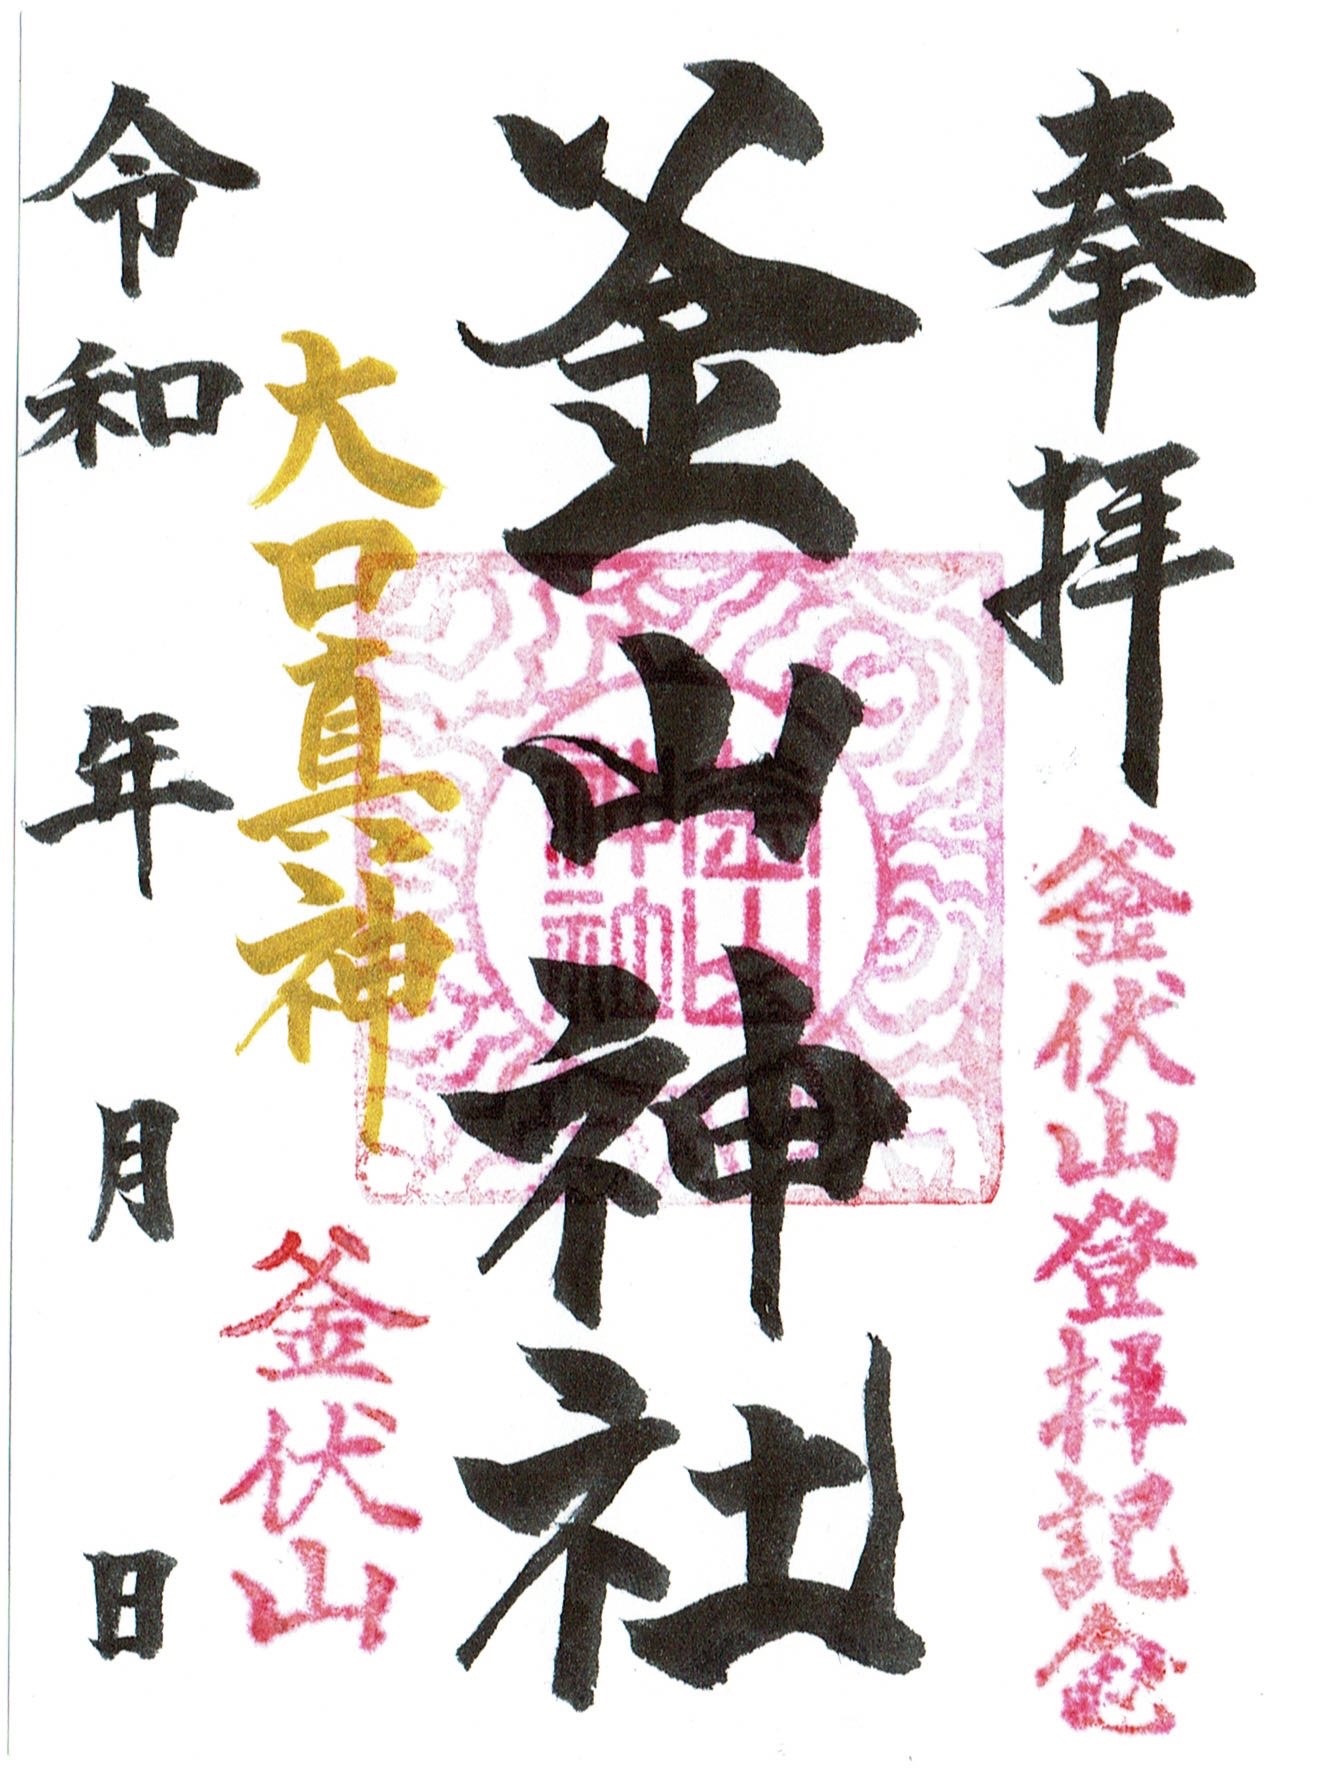 奉拝
釜伏山登拝記念
釜山神社
大口真神
釜伏山
令和 年 月 日